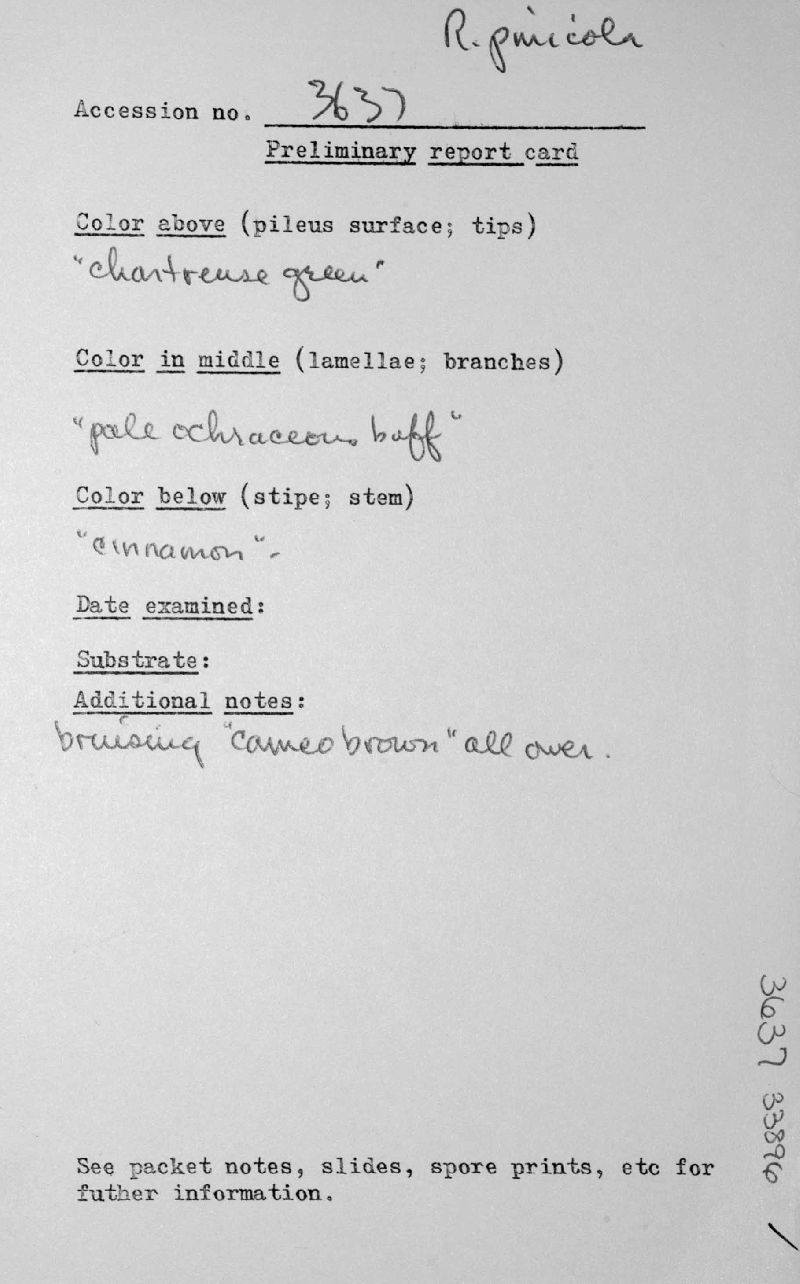 R. pinicola
Accession no. 3637
Preliminary report card
Color above (pileus surface; tips)
"chartreuse green"
Color in middle (lamellae; branches)
"pale ochraceous buff"
Color below (stipe; stem)
"cinnamon"-
Date examined:
Substrate:
Additional notes:
bruising "cameo brown" all over.
See packet notes, slides, spore prints, etc for
futher information.
3637 33896 /